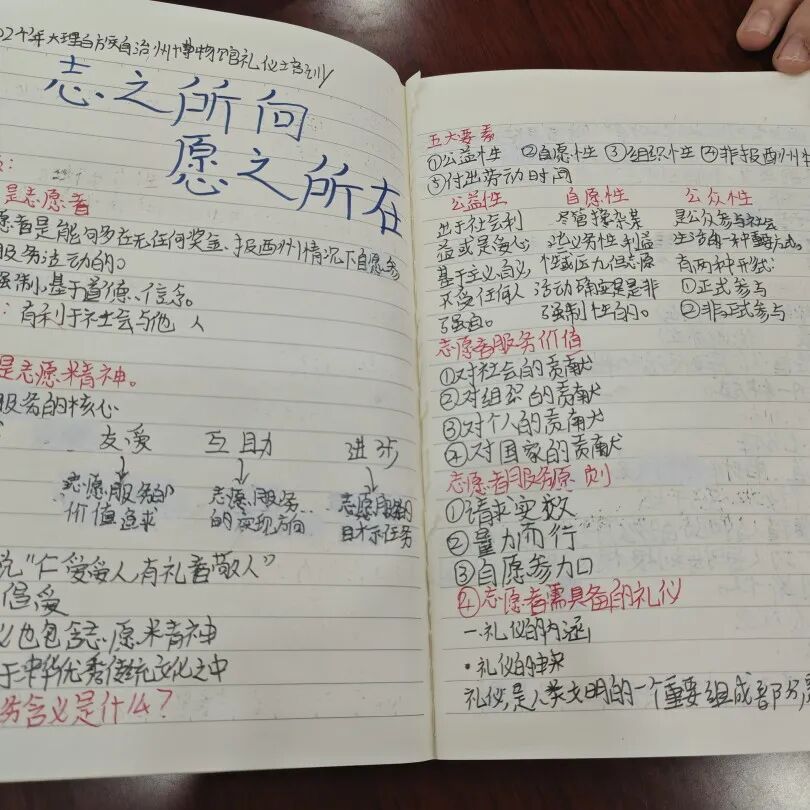 024年大理白族自治州博物馆礼仪培训
志之所向
愿之所在
是志愿者
愿者是能够在无任何奖金、报酬州情况下自愿参
服务活动的。
强制,基于道德、信念。
:有利于社会与他 人
是志愿米精神。
服务的核心
友爱 互助 进步
志愿服务的 志愿服务 志愿服务的
价值追求 的实现方向 目标任务
说“仁爱爱人,有礼者敬人”
倡爱
义也包含志愿米青神
于中华优秀传统文化之中
务含义是什么?
五大要素
①公益性 ②自愿性 ③组织性 ④非报酬州性
⑤付出劳动时间
公益性 自愿性 公众性
出于社会利 尽管掺杂某 是公众参与社会
益或是善心 些义务性利益 生活的一种重要方式。
基于主义高义, 性或压力但志愿 有两种形式:
不受任何人 活动确实是是非 ①正式参与
强迫。 强制性的。 ②非正式参与
志愿者服务价值
①对社会的贡献
②对组织的贡献
③对个人的贡献
④对国家的贡献
志愿者服务原则
①请求实效
②量力而行
③自愿参加
④志愿者需具备的礼仪
一.礼仪的内涵
•礼仪的由来
礼仪,是人类文明的一个重要组成部分,